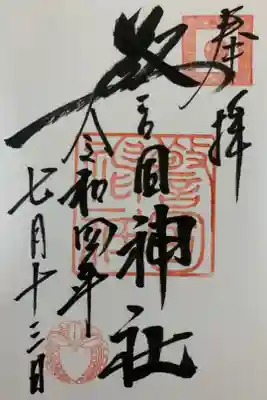 奉拝
警固神社
令和四年
七月十三日